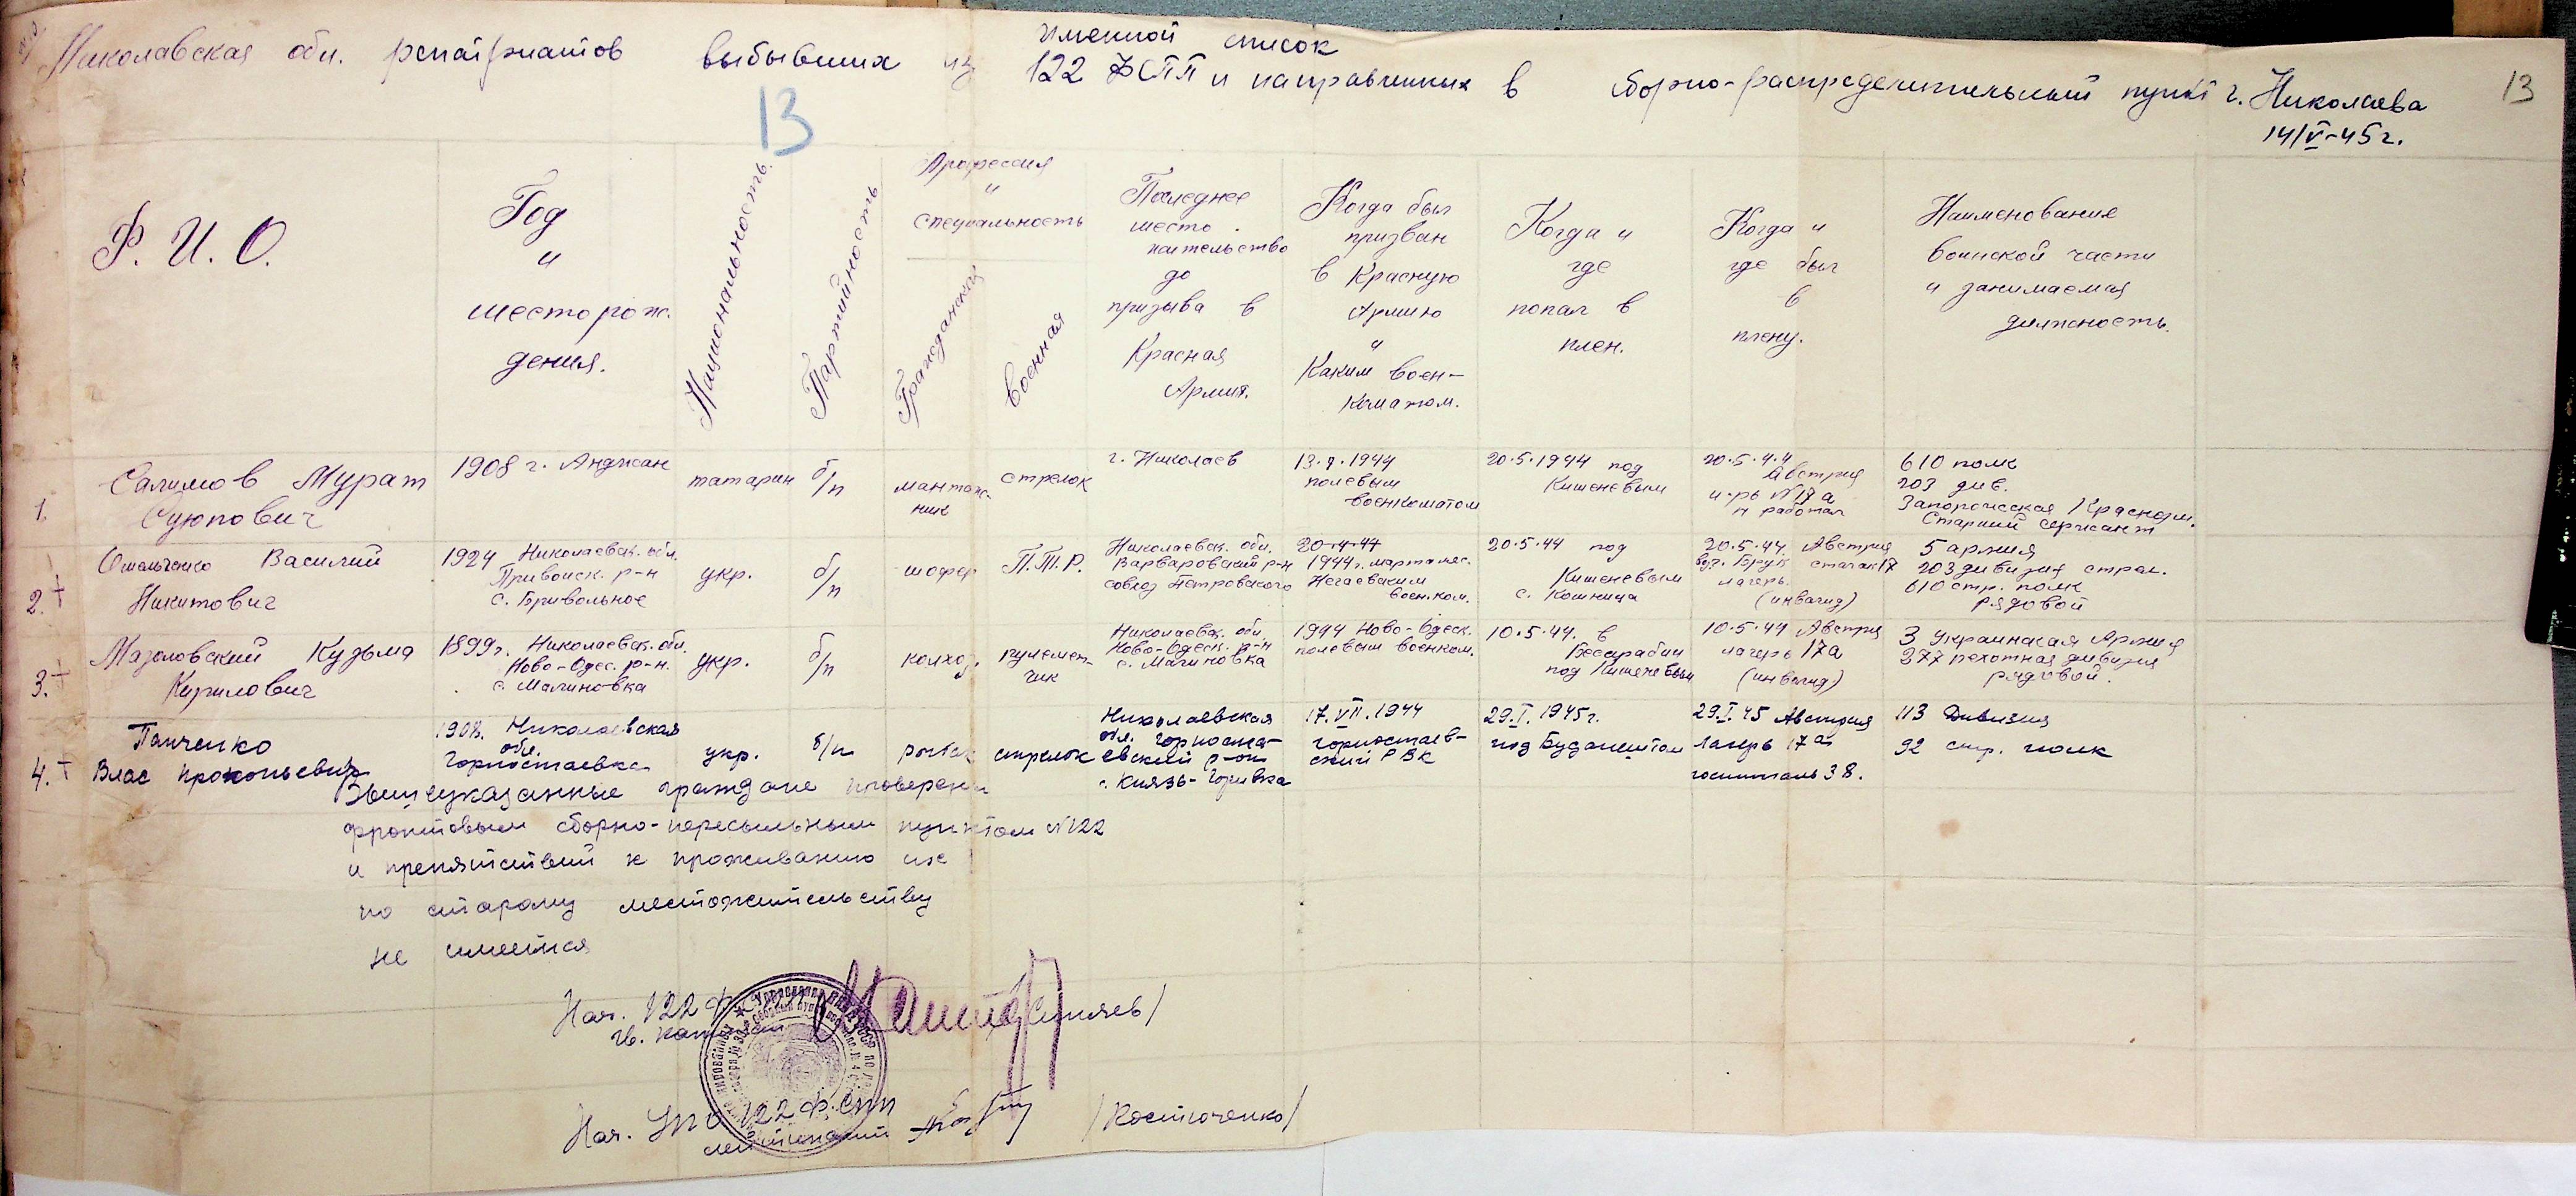 именной список
Николавская обл. репатриатов выбывших из 122 ФСПП и направленных в сборно-распределительный пункт г. Николаева
13
13
14/V-45 г.
Ф. И. О.
Год
и
месторож.
дения.
Национальность.
Партийность
Профессия
и
специальность
Гражданская
Военная
Последнее
место
жительство
до
призыва в
Красная
Армия.
Когда был
призван
в Красную
Армию
и
Каким воен-
коматом.
Когда и
где
попал в
плен.
Когда и
где был
в
плену.
Наименование
воинской части
и занимаемая
должность.
1.
Салимов Мурат
Суюпович
1908 г. Анджан
татарин
б/п
мантаж-
ник
стрелок
г. Николаев
13.4.1944
полевым
военкоматом
20.5.1944 под
Кишеневым
20.5.44
Австрия
работал
610 полк
203 див.
Запорожская Краснозн.
Старший сержант
2. +
Омельченко Василий
Никитович
1924 Николаевск. обл.
Привольск. р-н
с. Привольное
укр.
б/п
шофер
П.Т.Р.
Николаевск. обл.
Варваровский р-н
совхоз Петровского
20-4-44
1944 г. марта мес.
военком.
20.5.44 под
Кишеневым
с. Кошница
20.5.44. Австрия
лагерь
(инвалид)
5 армия
203 дивизия стрел.
610 стр. полк
рядовой
3. +
Мазоловский Кузьма
Кирилович
1899 г. Николаевск. обл.
Ново-Одес. р-н.
с. Малиновка
укр.
б/п
колхоз.
пулемет-
чик
Николаевск. обл.
Ново-Одеск. р-н
с. Малиновка
1944 Ново-Одеск.
полевым военком.
10.5.44. в
Бесарабии
под Кишеневым
10.5.44 Австрия
лагерь 17а
(инвалид)
3 Украинская Армия
277 пехотная дивизия
рядовой.
4. +
Панченко
Влас Прокопьевич
1908. Николаевская
обл.
Горностаевка
укр.
б/п
рыбак
стрелок
Николаевская
обл. Горноста-
евский р-он
с. Князь-Горивка
17.VII.1944
горностаев-
ский РВК
29.I.1945 г.
под Будапештом
29.I.45 Австрия
Лагерь 17а
госпиталь 38.
113 Дивизия
92 стр. полк
Вышеуказанные граждане проверены
фронтовым сборно-пересыльным пунктом №122
и препятствий к проживанию их
по старому местожительству
не имеется
Нач. 122 ФСПП
Гв. капитан
Нач. 122 ФСПП
лейтенант
/Костюченко/